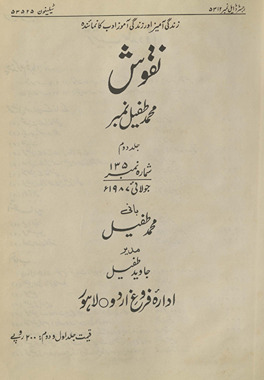 رجسٹرڈ ایل نمبر ۵۳۱۲
ٹیلیفون ۵۳۵۲۵
زندگی آمیز اور زندگی آموز ادب کا نمائندہ
نقوش
محمد طفیل نمبر
جلد دوم
شمارہ نمبر ۱۳۵
جولائی ۱۹۸۷ء
بانی
محمد طفیل
مدیر
جاوید طفیل
ادارۂ فروغ اردو ○ لاہور
قیمت جلد اول و دوم : ۲۰۰ روپے